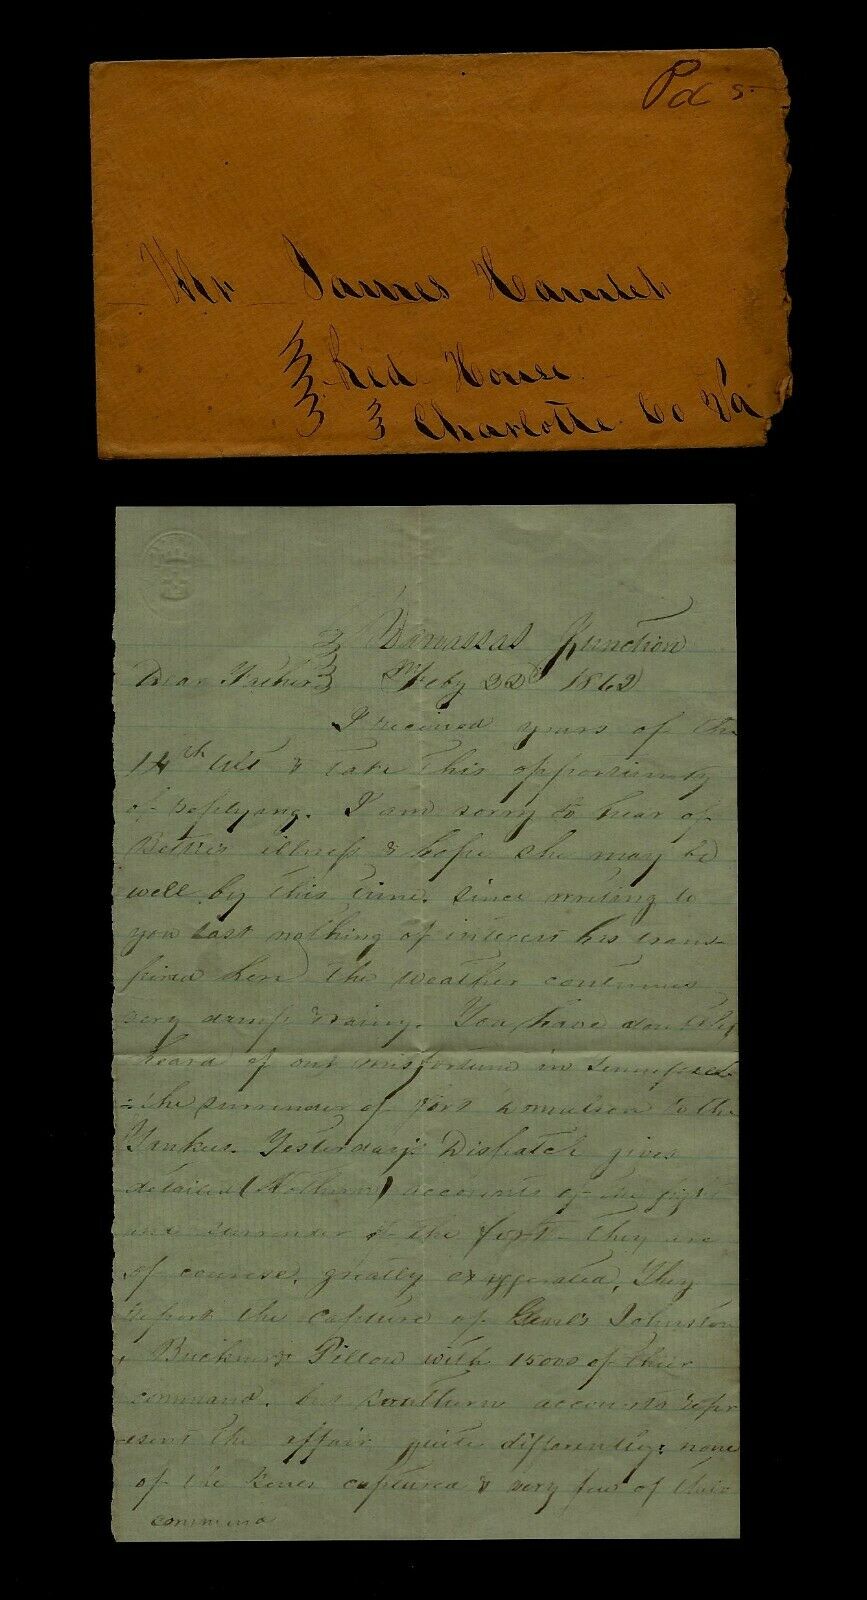 Pd 5
Mr James Hamlet
Red House
Charlotte Co Va
Manassas Junction
Dear Father Feby 22d 1862
I received yours of the
14th ult & take this opportunity
of replyang. I am sorry to hear of
Betties illness & hope she may be
well by this time. since writing to
you last nothing of interest has trans-
pired here the weather continues
very damp & rainy. You have doubtless
heard of our misfortune in Tennessee
- the surrender of fort Donnelson to the
Yankees. Yesterdays Dispatch gives
detailed (Nothern) accounts of the fight
and surrender of the fort - they are
of course, greatly exaggerated. They
report the capture of Genls Johnston
, Buckner & Pillow with 15000 of thier
command. but southern accounts repr
-esent the affair quite differently: none
of the Genes captured & very few of their
command